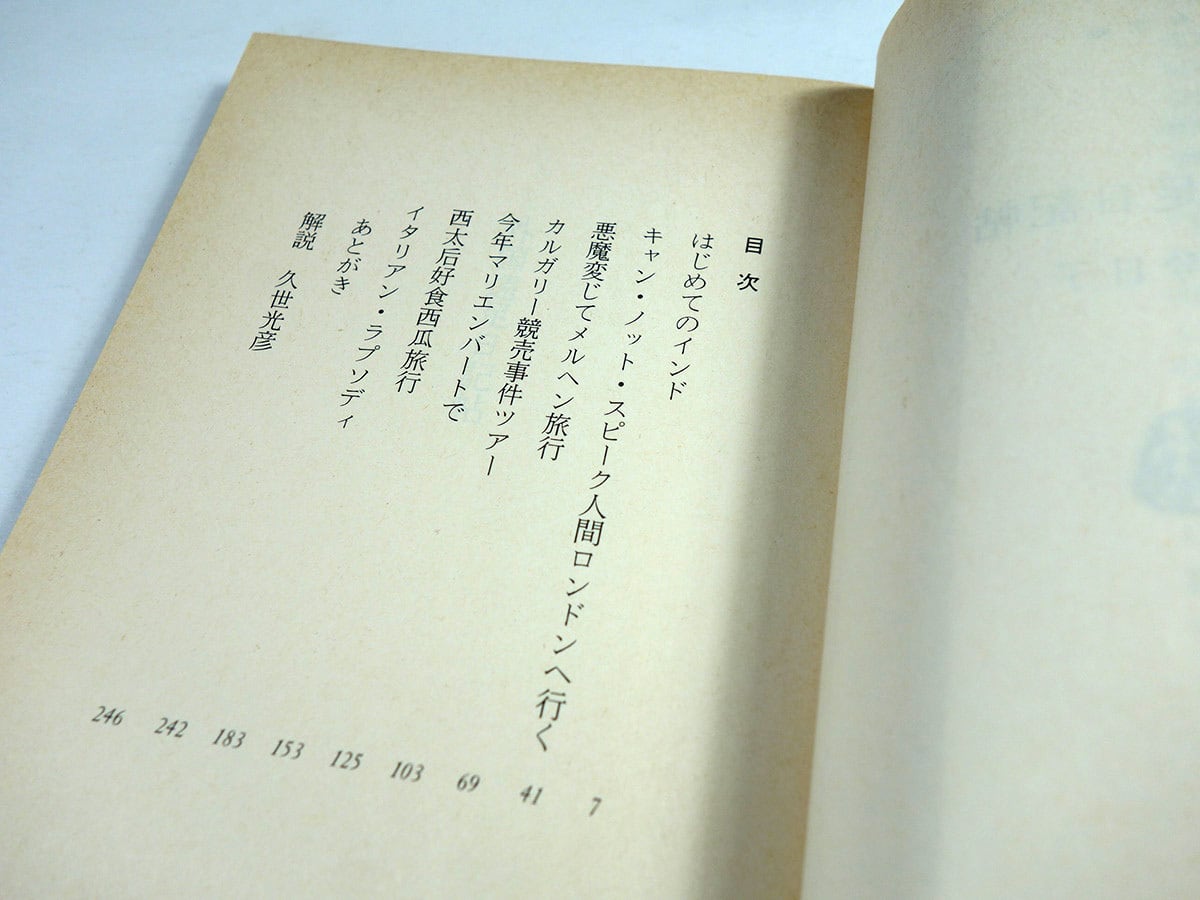 目次
はじめてのインド
キャン・ノット・スピーク人間ロンドンへ行く
悪魔変じてメルヘン旅行
カルガリー競売事件ツアー
今年マリエンバートで
西太后好食西瓜旅行
イタリアン・ラプソディ
あとがき
解説 久世光彦
7
41
69
103
125
153
183
242
246